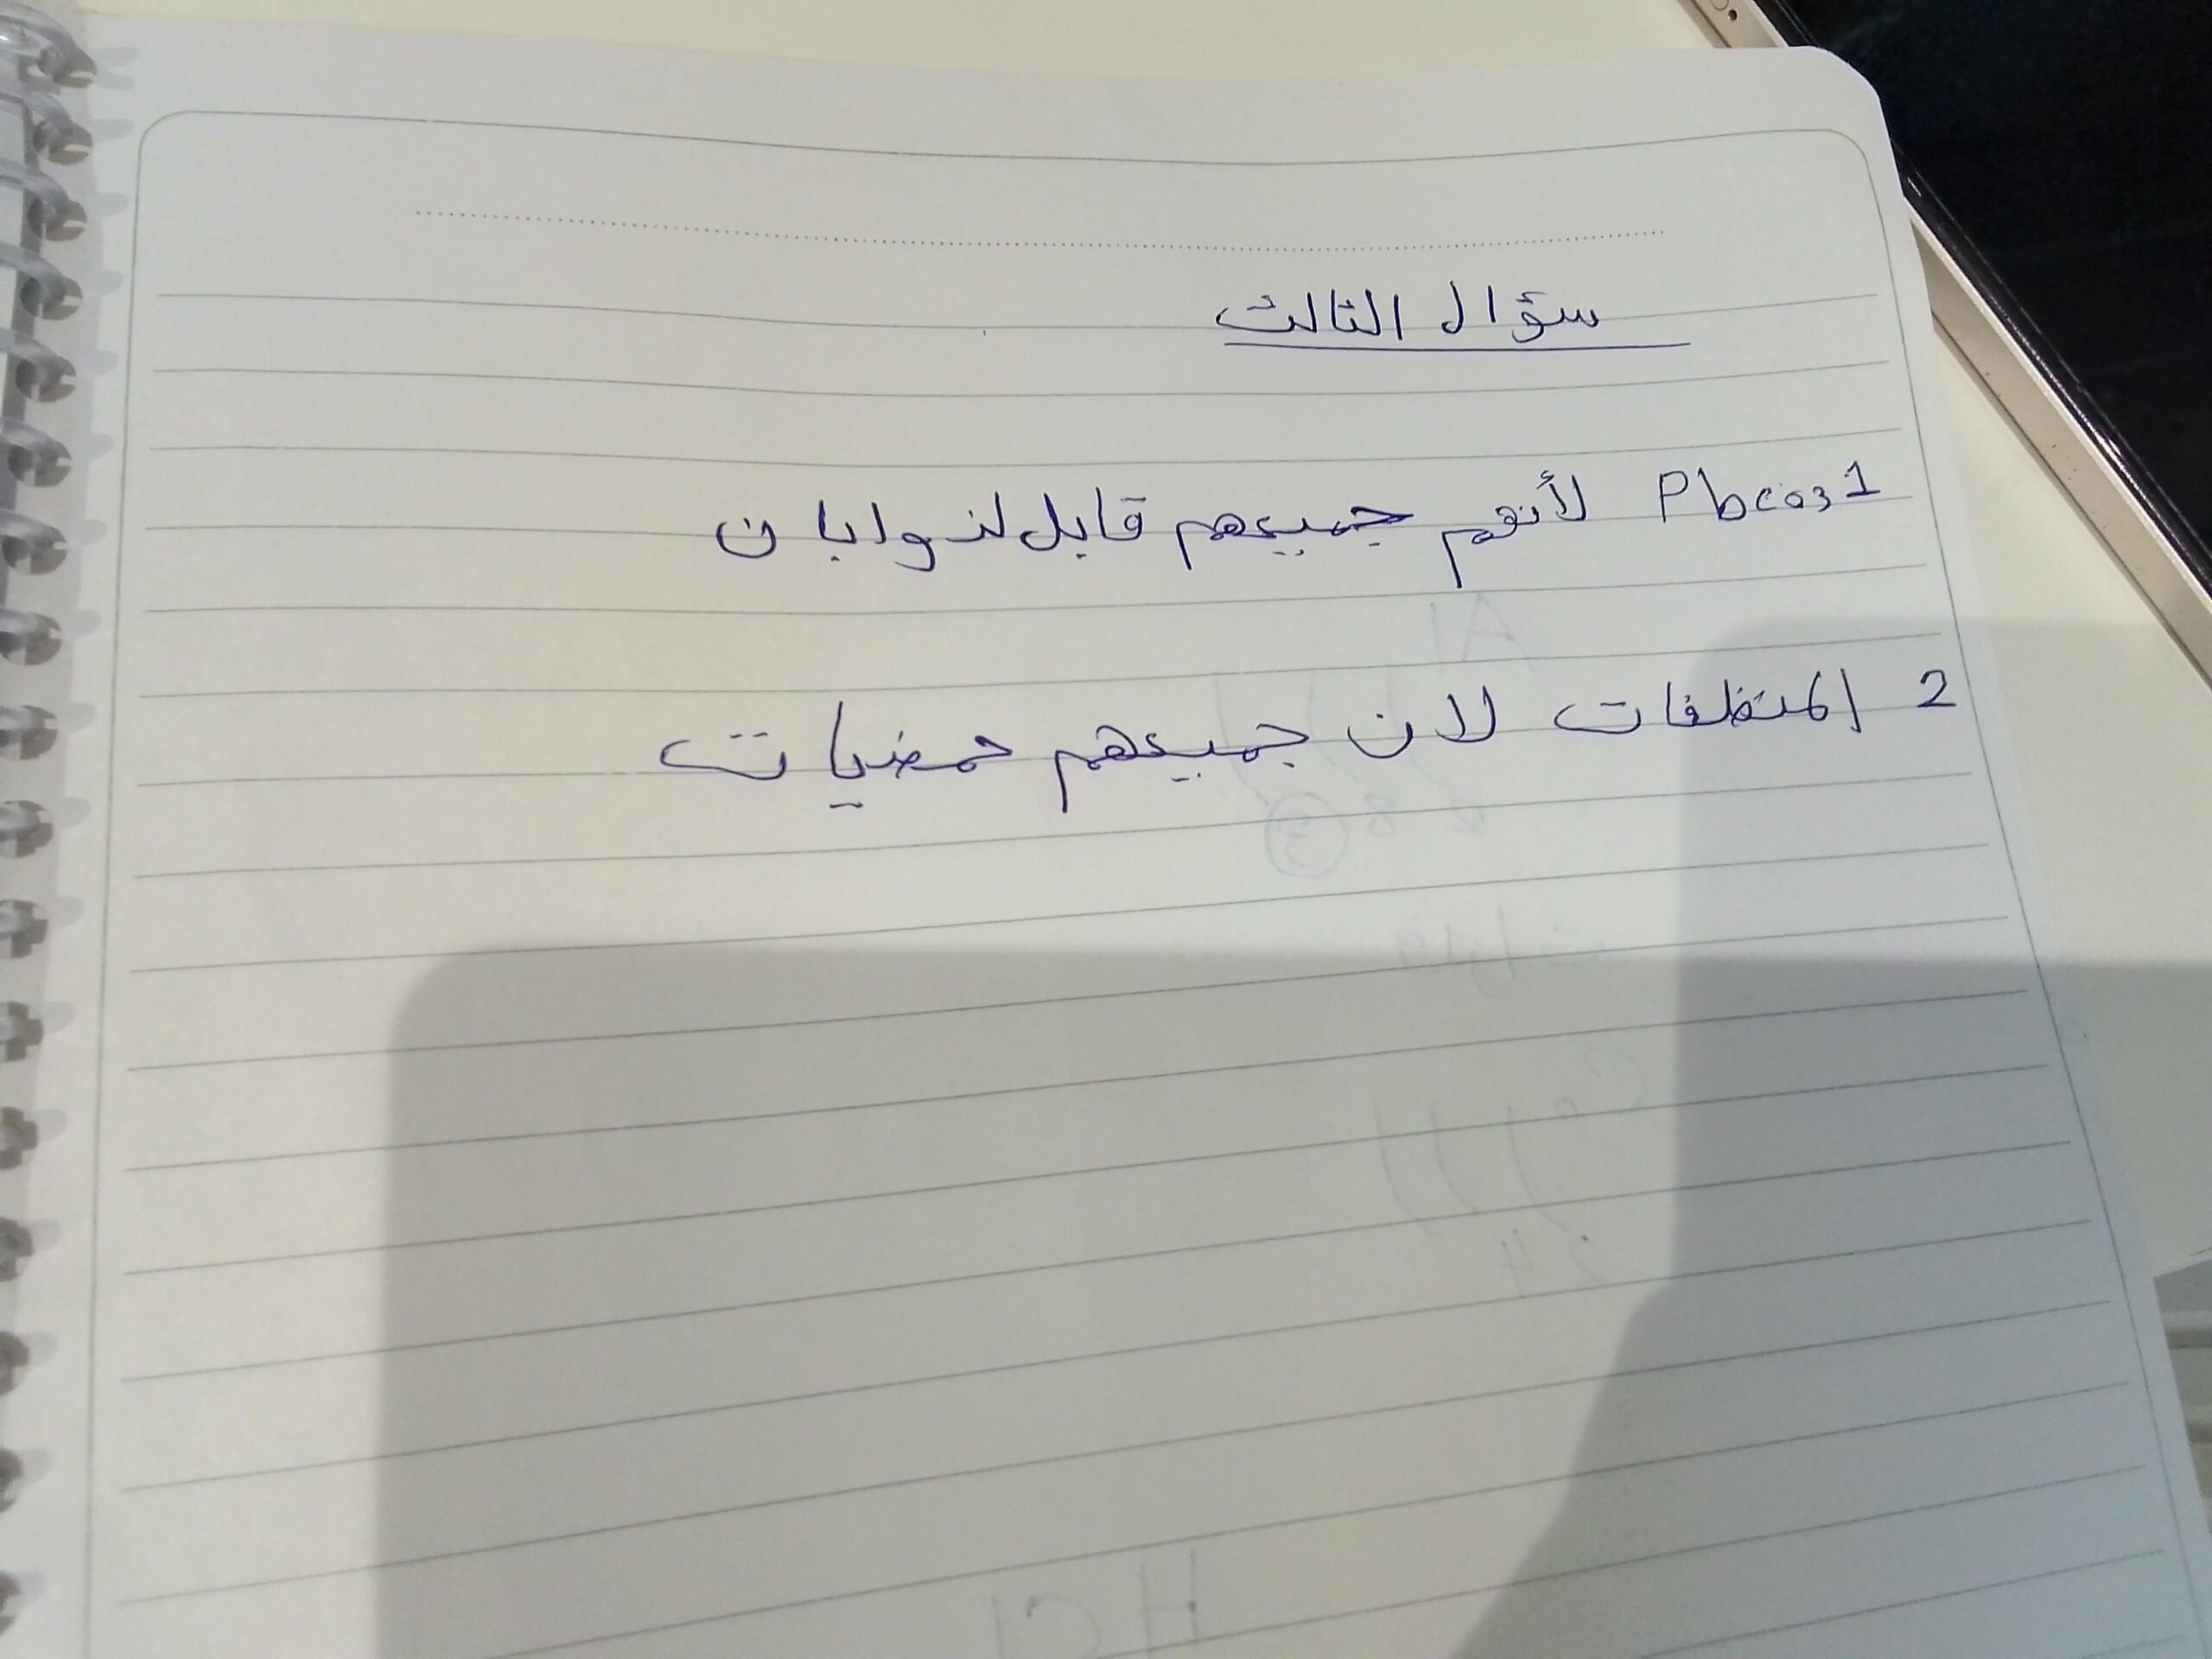 سؤال الثالث
1 Pbco3 لأنهم جميعهم قابل لذوابان
2 المنظفات لان جميعهم حمضيات